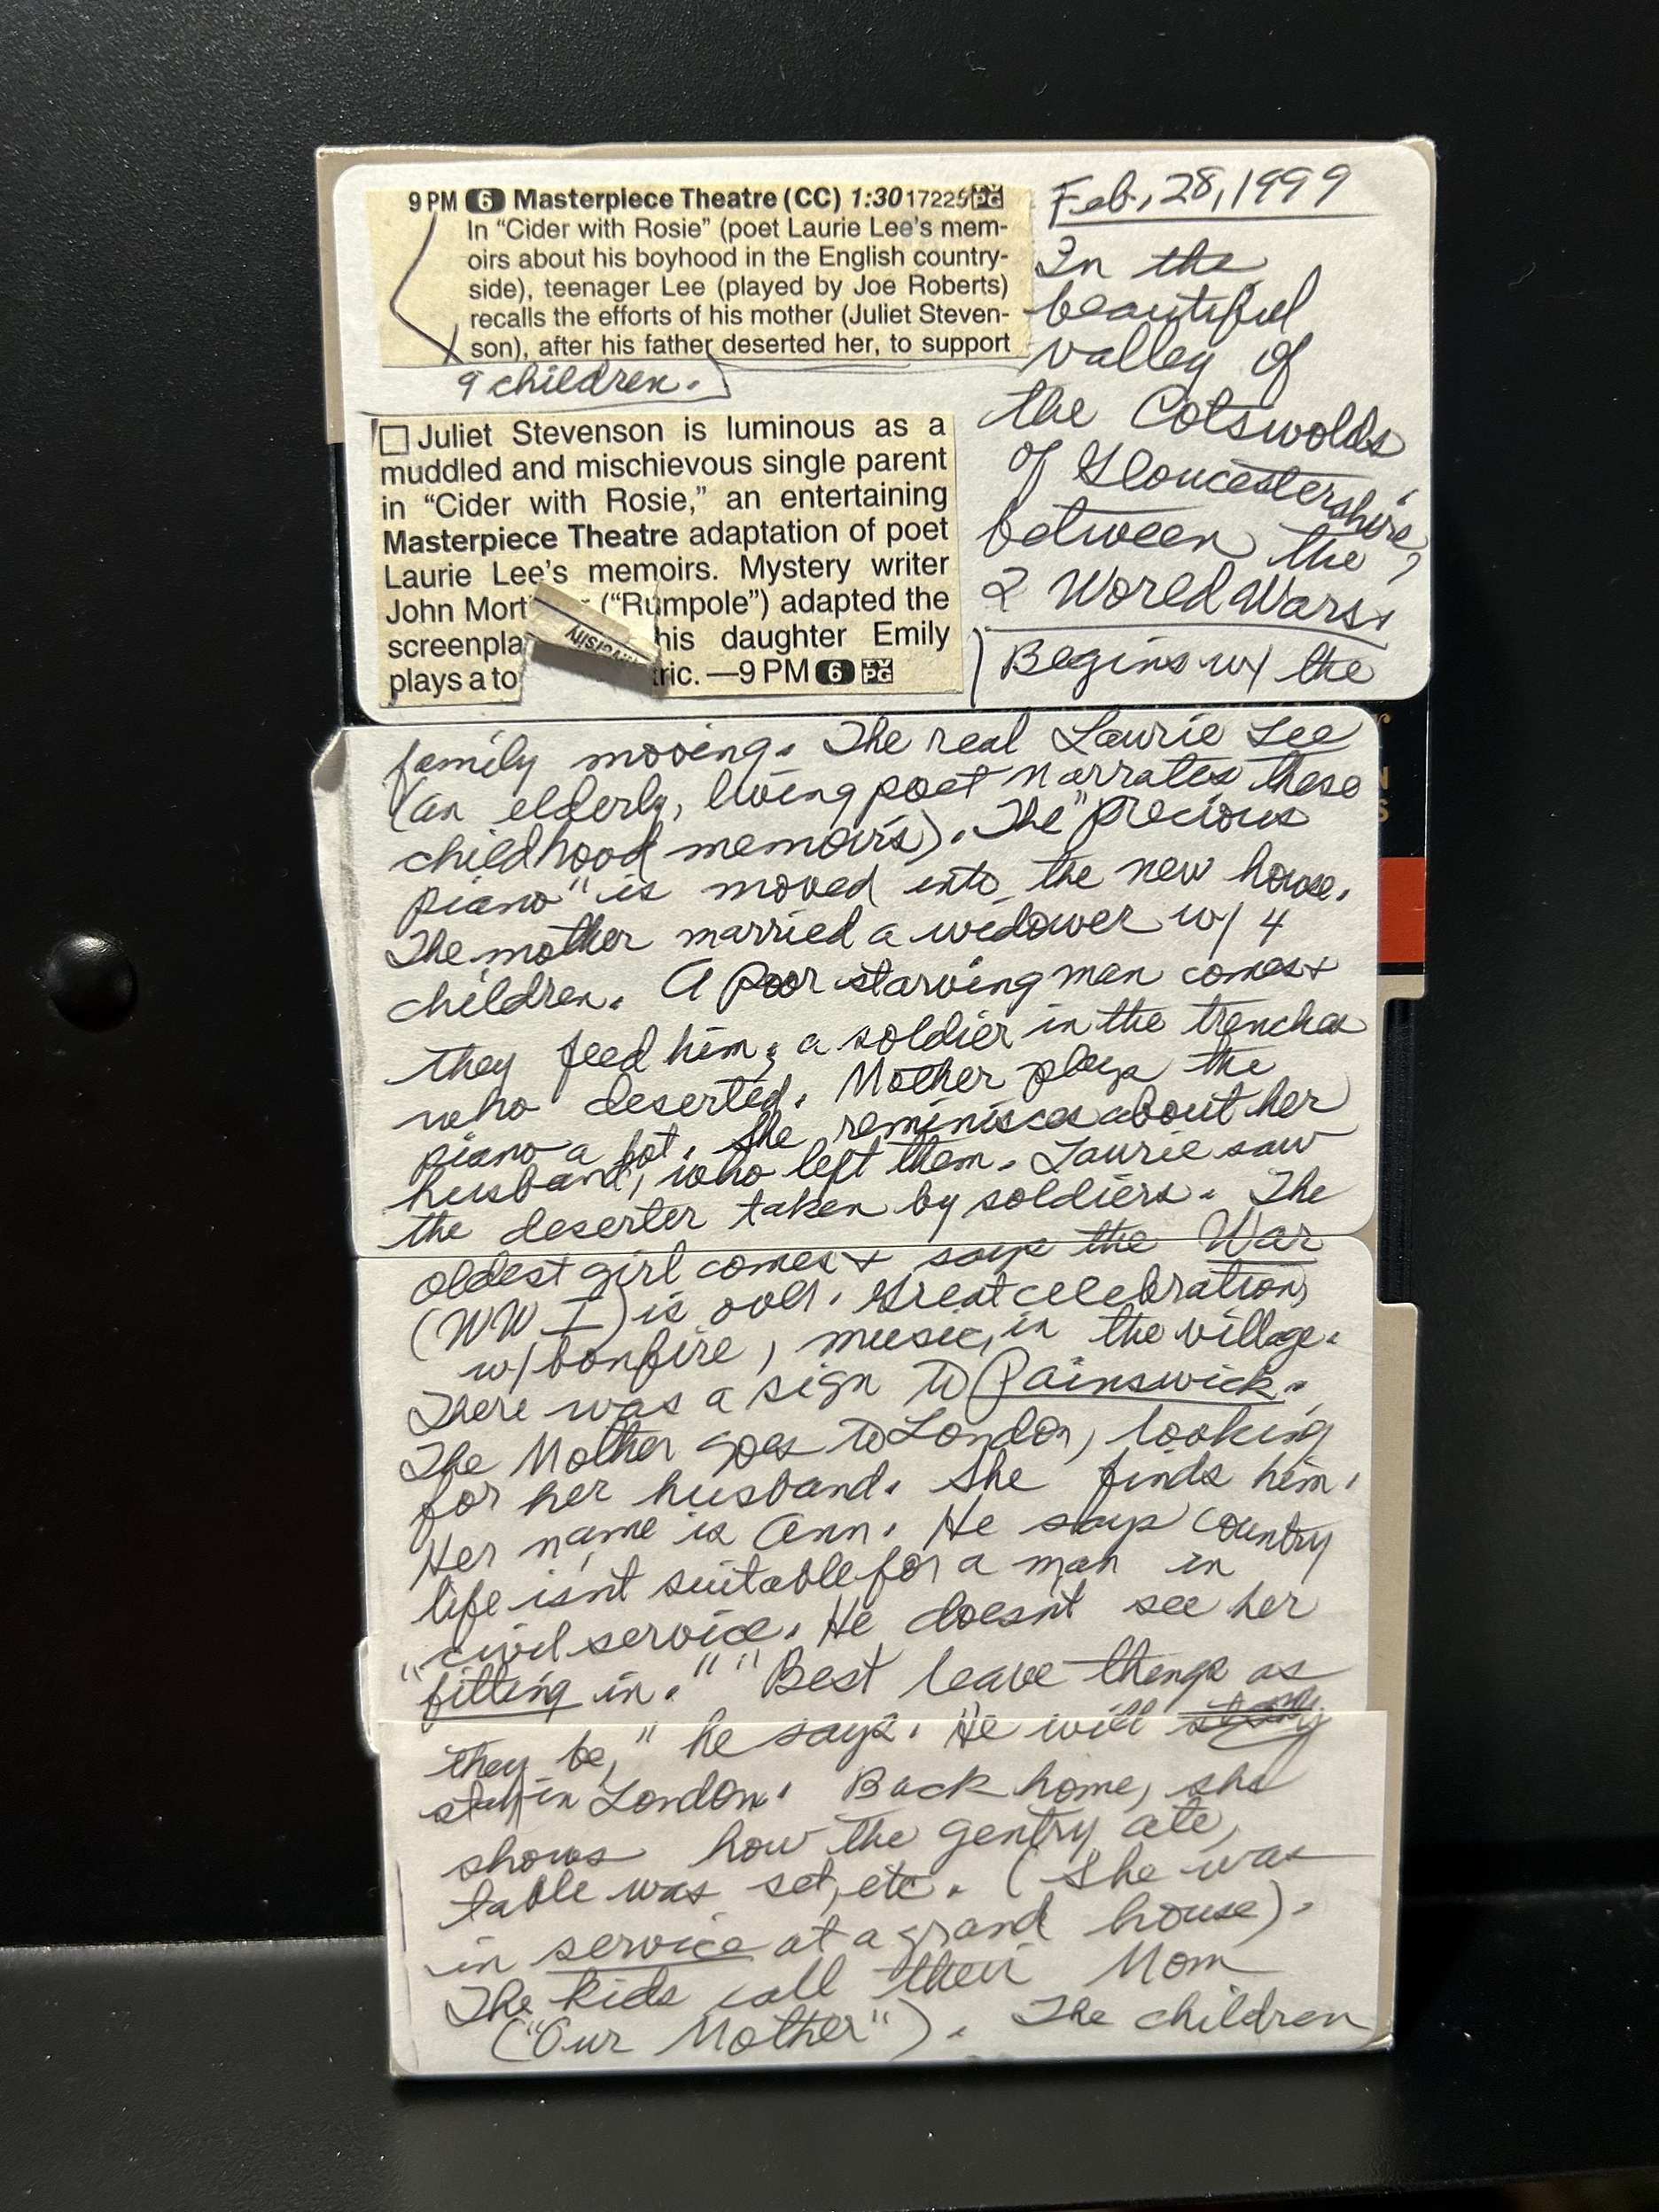 9 PM 6 Masterpiece Theatre (CC) 1:30 17225 TV PG
In “Cider with Rosie” (poet Laurie Lee’s mem-
oirs about his boyhood in the English country-
side), teenager Lee (played by Joe Roberts)
recalls the efforts of his mother (Juliet Steven-
son), after his father deserted her, to support
9 children.
□ Juliet Stevenson is luminous as a
muddled and mischievous single parent
in “Cider with Rosie,” an entertaining
Masterpiece Theatre adaptation of poet
Laurie Lee’s memoirs. Mystery writer
John Mort (“Rumpole”) adapted the
screenpla his daughter Emily
plays a to tric. —9 PM 6 TV PG
Feb. 28, 1999
In the
beautiful
valley of
the Cotswolds
of Gloucestershire,
between the
2 World Wars.
Begins w/ the
family moving. The real Laurie Lee
(an elderly, living poet narrates these
childhood memoirs). The "precious
piano" is moved into the new house.
The mother married a widower w/ 4
children. A poor starving man comes +
they feed him; a soldier in the trenches
who deserted. Mother plays the
piano a lot. She reminisces about her
husband, who left them. Laurie saw
the deserter taken by soldiers. The
oldest girl comes + says the War
(WW I) is over. Great celebration
w/ bonfire, music, in the village.
There was a sign to Painswick.
The Mother goes to London, looking
for her husband. She finds him.
Her name is Ann. He says country
life isn't suitable for a man in
civil service. He doesn't see her
"fitting in." "Best leave things as
they be," he says. He will
stay in London. Back home, she
shows how the gentry ate,
table was set, etc. (She was
in service at a grand house).
The kids call their Mom
("Our Mother"). The children